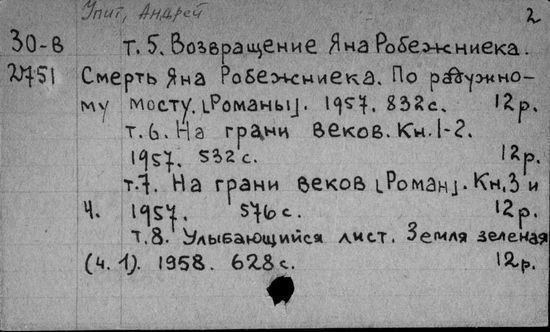 Упит, Андрей 2
30-в т. 5. Возвращение Яна Робежниека.
2751 Смерть Яна Робежниека. По радужно-
му мосту. [Романы]. 1957. 832 с. 12 р.
т. 6. На грани веков. Кн. 1-2.
1957. 532 с. 12 р.
т. 7. На грани веков [Роман]. Кн. 3 и
4. 1957. 576 с. 12 р.
т. 8. Улыбающийся лист. Земля зеленая
(ч. 1). 1958. 628 с. 12 р.